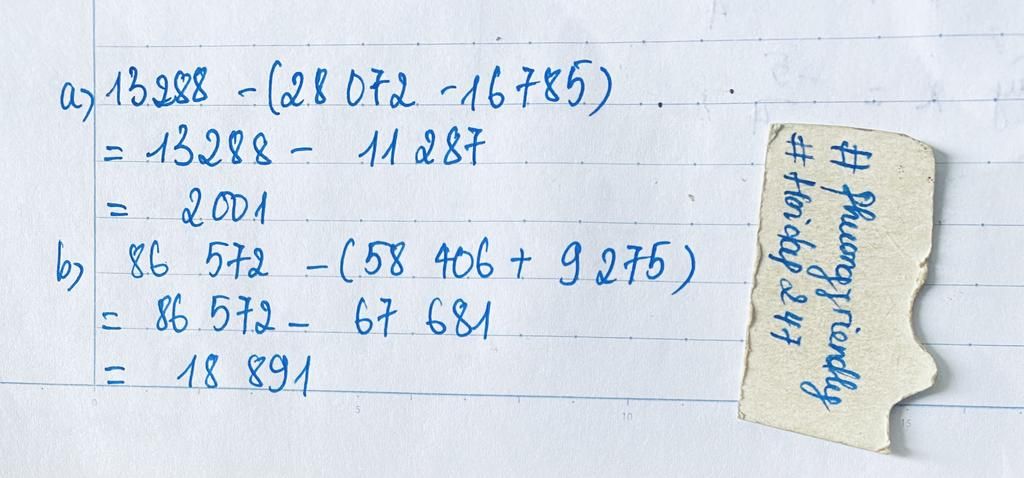 a) 13288 - (28 072 - 16 785)
= 13288 - 11 287
= 2001
b) 86 572 - (58 406 + 9 275)
= 86 572 - 67 681
= 18 891
# phuongfriendly
# Hoidap 247
0 5 10 15